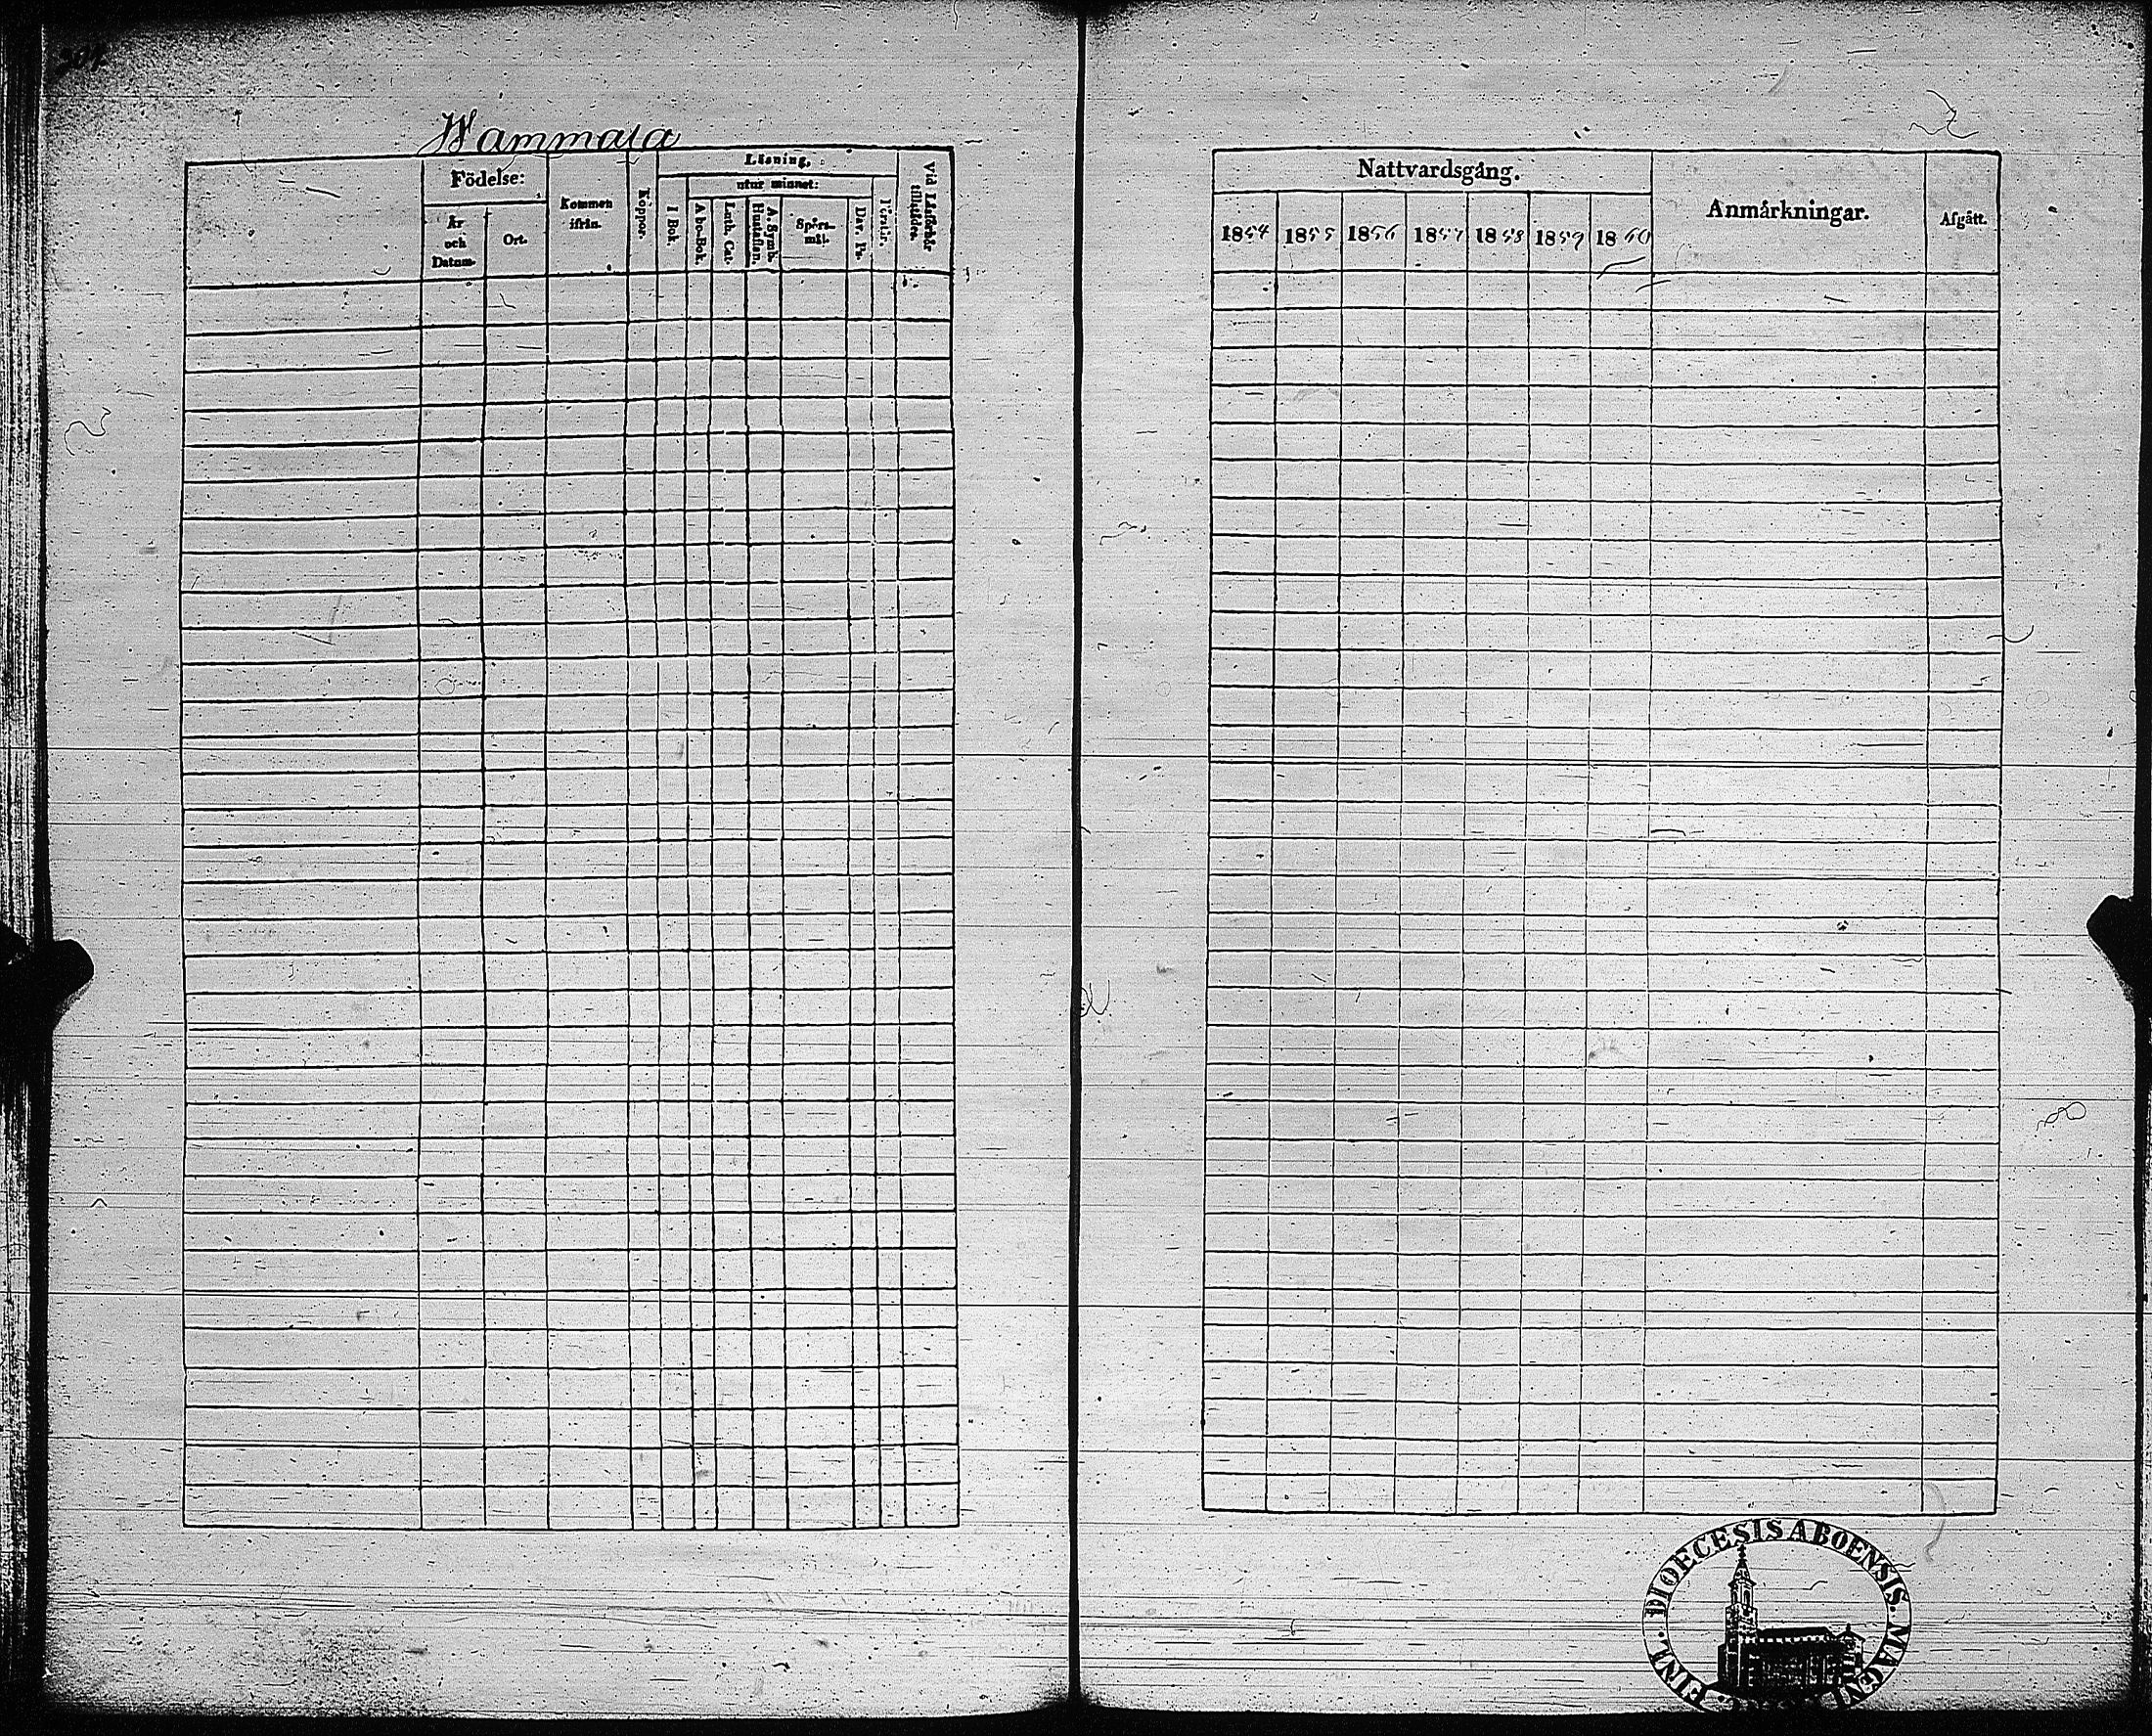 207.
Wammala
Födelse:
År
och
Datum.
Ort.
Kommen
ifrån.
Koppor.
Läsning,
utur minnet:
I Bok.
Abc-Bok.
Luth. Cat.
Hustaflan.
A. Symb.
Spörs-
mål.
Dav. Ps.
Förstår.
Vid Läsförhör
tillstädes.
Nattvardsgång.
1854 1855 1856 1857 1858 1859 1860
Anmårkningar.
Afgått.
DIOECESIS ABOENSIS. MAGNI
FINL.